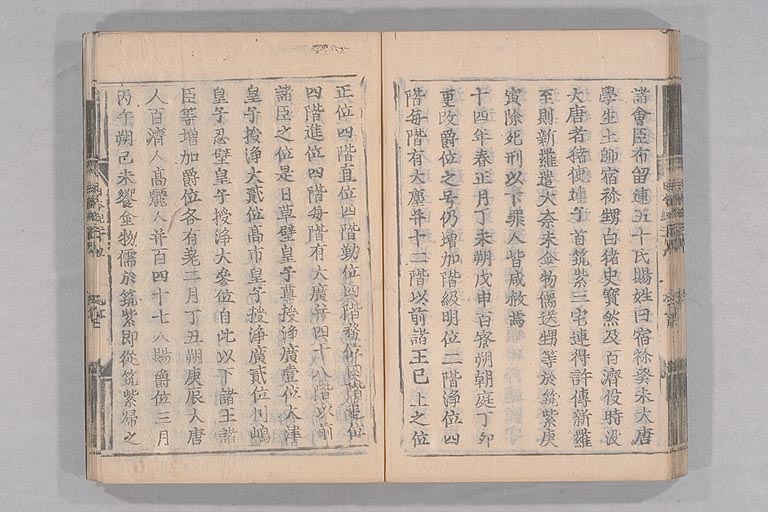 諸會臣布留連五十氏賜姓曰宿祢癸未大唐
學生土師宿祢甥白猪史寶然及百濟役時沒
大唐者猪使連子首筑紫三宅連得許傳新羅
至則新羅遣大奈末金物儒送甥等於筑紫庚
寅除死刑以下罪人皆咸赦焉
十四年春正月丁未朔戊申百寮朔朝庭丁卯
更改爵位之号仍增加階級明位二階淨位四
階每階有大廣并十二階以前諸王已上之位
正位四階直位四階勤位四階務位四階追位
四階進位四階每階有大廣并四十八階以前
諸臣之位是日草壁皇子尊授淨廣壹位大津
皇子授淨大貳位高市皇子授淨廣貳位川嶋
皇子忍壁皇子授淨大參位自此以下諸王諸
臣等增加爵位各有差二月丁丑朔庚辰大唐
人百濟人高麗人并百四十七人賜爵位三月
丙午朔己未饗金物儒於筑紫即從筑紫歸之